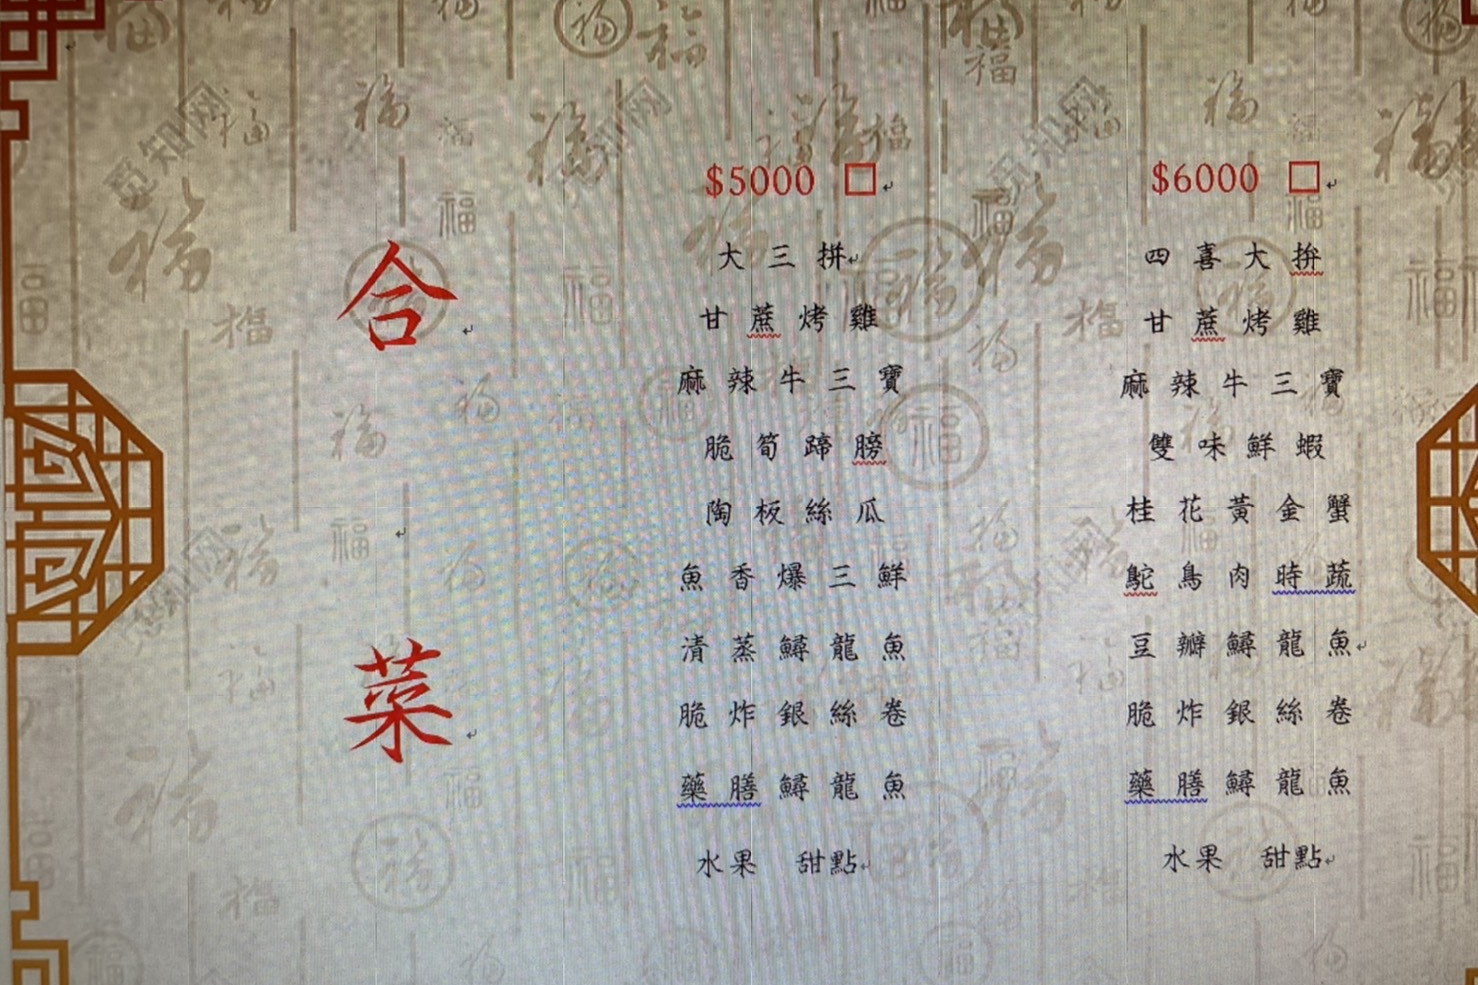 合
菜
$5000 □
大三拼
甘蔗烤雞
麻辣牛三寶
脆筍蹄膀
陶板絲瓜
魚香爆三鮮
清蒸鱘龍魚
脆炸銀絲卷
藥膳鱘龍魚
水果 甜點
$6000 □
四喜大拚
甘蔗烤雞
麻辣牛三寶
雙味鮮蝦
桂花黃金蟹
鴕鳥肉時蔬
豆瓣鱘龍魚
脆炸銀絲卷
藥膳鱘龍魚
水果 甜點
福
觅知网